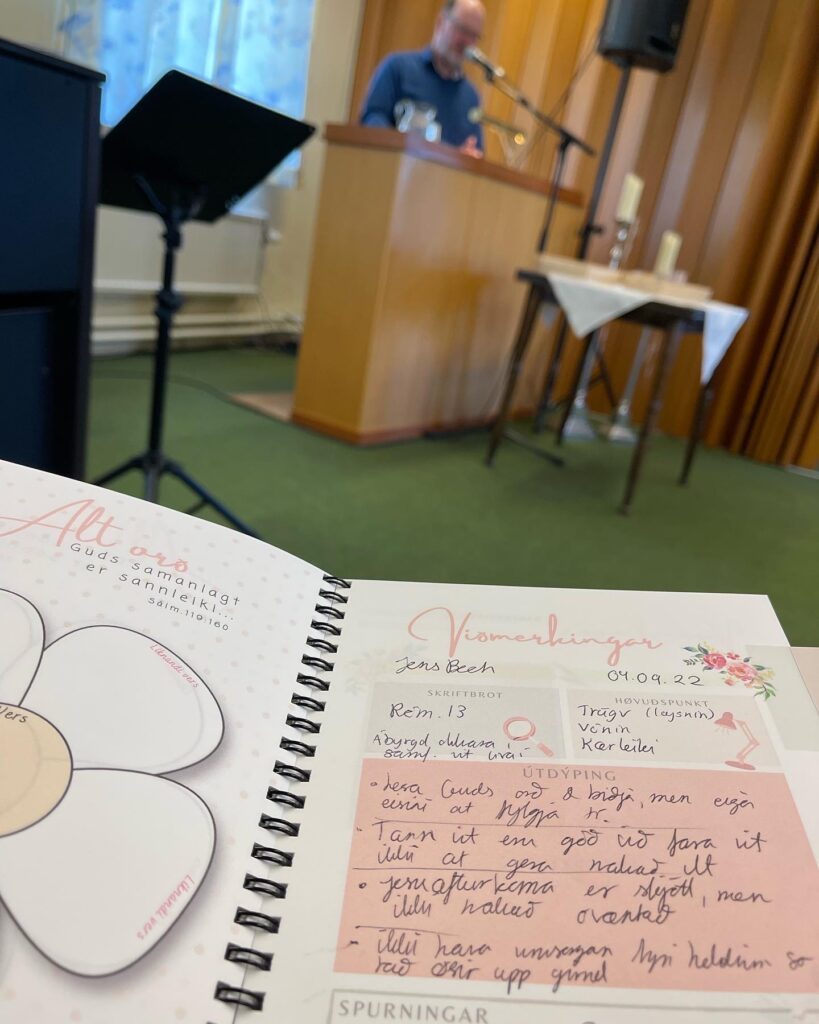 Alt orð
Guds samanlagt
er sannleiki...
Sálm.119:160
Líknandi vers
vers
Líknandi vers
Viðmerkingar
Jens Bech
04.09.22
SKRIFTBROT
Róm. 13
Ábyrgd okkara í
samf. út frá í
HØVUDSPUNKT
Trúgv (loysnin)
Vónin
Kærleiki
ÚTDÝPING
• Lesa Guds orð & biðja, men eisini at fylgja
Tann ið er góð fara út
ikki at gera nakað ilt
• Jesu afturkoma er skjótt, men
ikki nakað óvæntað
ikki hava umsorgan fyri holdinum so
tað øsir upp girnd
SPURNINGAR